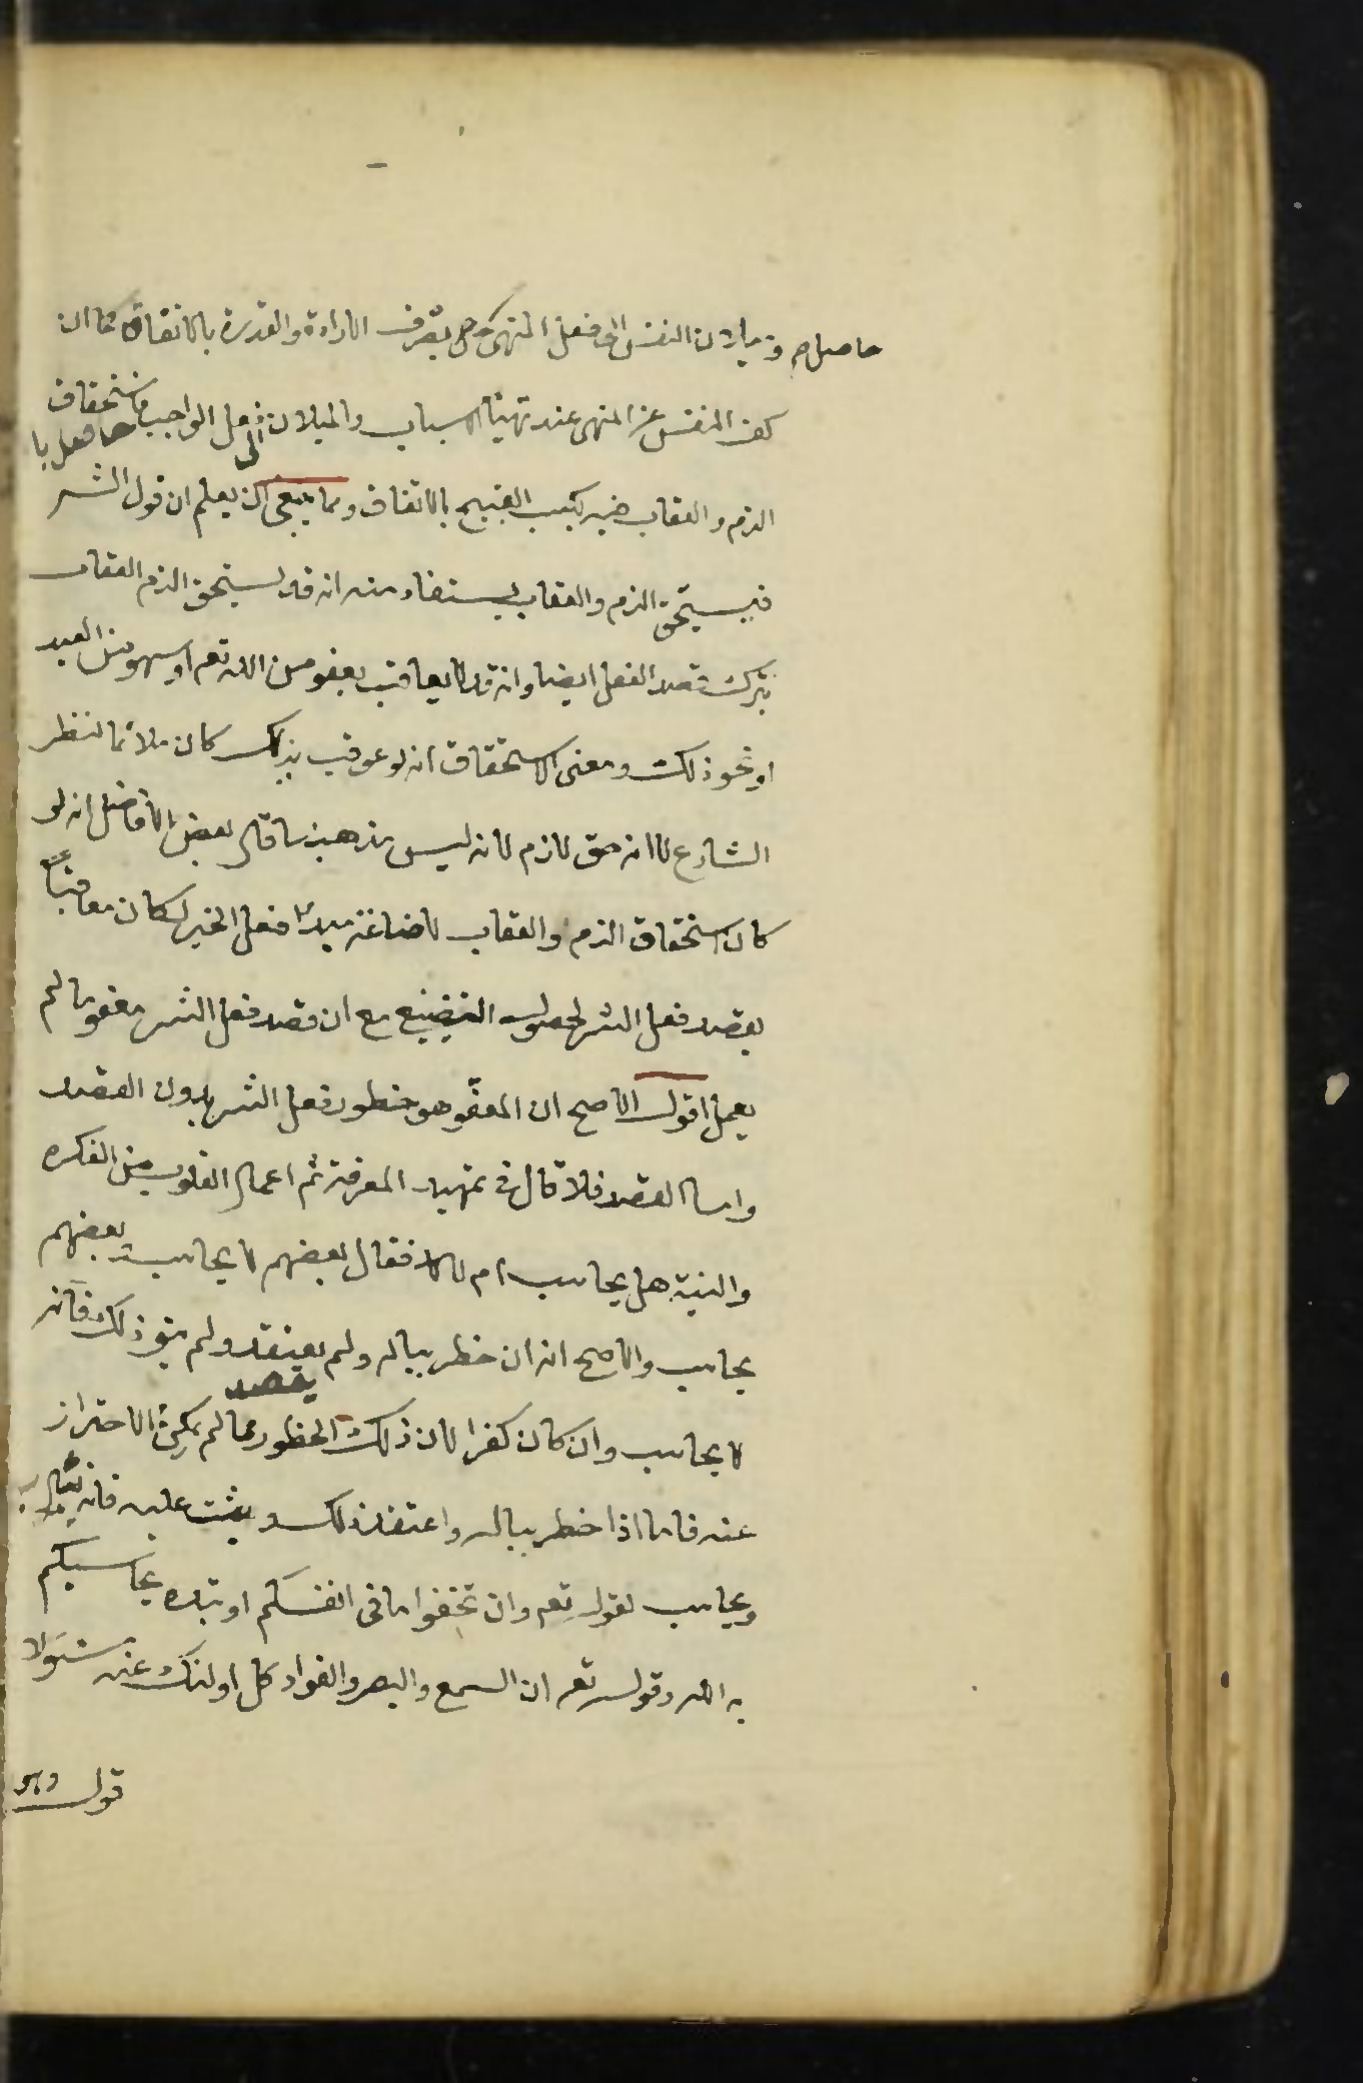 حاصل وميلان النفس الى فعل المنهى يصرف الارادة والقدرة بالاتفاق كما ان
كف النفس عن المنهى عند تهيئا الاسباب والميلان الى فعل الواجب فاستحقاق
الذم والعقاب فيه بكسب القبيح بالاتفاق ومما ينبغى ان يعلم ان قول الشر
فيستحق الذم والعقاب يستفاد منه انه قد يستحق الذم العقاب
بترك قصد الفعل ايضا وانه قد لا يعاقب بعفو من الله تعم او سهو من العبد
او نحو ذلك ومعنى الاستحقاق انه لو عوقب بذلك كان ملائما لنظر
الشارع لا انه حق لازم لانه ليس مذهبنا قال بعض الافاضل انه لو
كان استحقاق الذم والعقاب لاضاعته مبدأ فعل الخير لكان معاقبًا
بقصد فعل الشر لحصول التضييع مع ان قصد فعل الشر معفو ما لم
يعمل اقول الاصح ان المعفو هو خطور فعل الشر بدون القصد
واما القصد فلا قال فى تمهيد المعرفة ثم اعمال القلوب من الفكره
والنية هل يحاسب ام لا فقال بعضهم لا يحاسب وبعضهم
يحاسب والاصح انه ان خطر بباله ولم يعتقد ولم ينو ذلك فانه
يقصد
لا يحاسب وان كان كفرا لان ذلك الخطور مما لم يمكن الاحتراز
عنه فاما اذا خطر بباله واعتقد ذلك ويثبت عليه فانه
ويحاسب لقوله تعم وان تخفوا ما فى انفسكم او تبدوه يحاسبكم
به الله وقوله تعم ان السمع والبصر والفواد كل اولئك عنه مسئولا
قوله